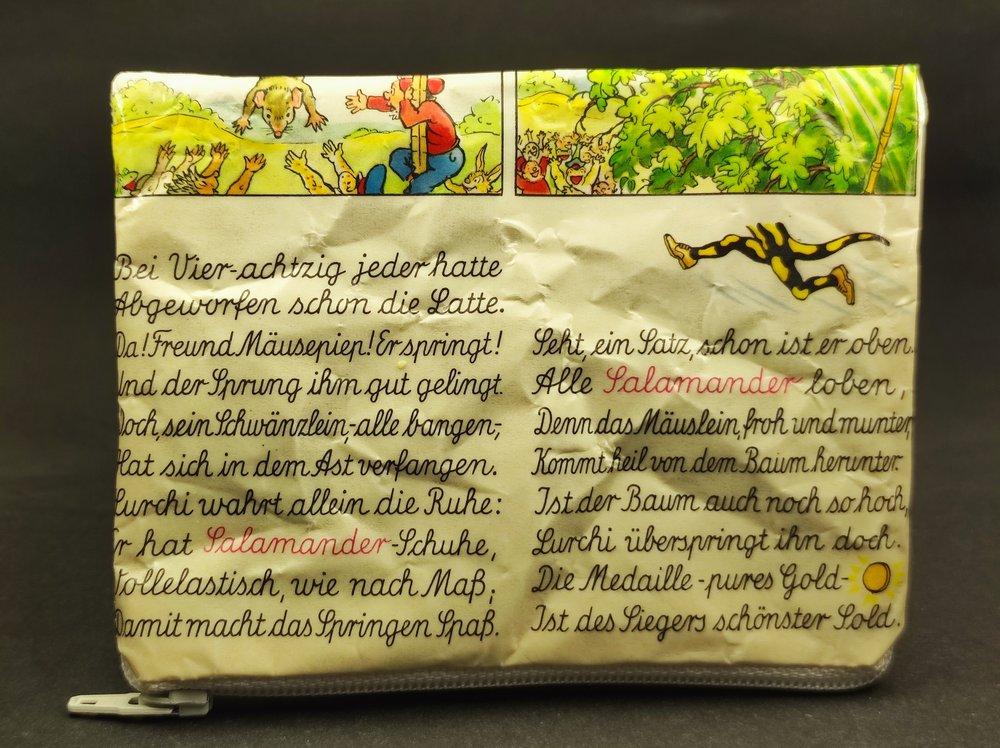 Bei Vier-achtzig jeder hatte
Abgeworfen schon die Latte.
Da! Freund Mäusepiep! Er springt!
Und der Sprung ihm gut gelingt.
Doch, sein Schwänzlein,-alle bangen,-
Hat sich in dem Ast verfangen.
Lurchi wahrt allein die Ruhe:
Er hat Salamander-Schuhe,
Vollelastisch, wie nach Maß;
Damit macht das Springen Spaß.
Seht, ein Satz, schon ist er oben.
Alle Salamander loben,
Denn das Mäuslein, froh und munter,
Kommt heil von dem Baum herunter.
Ist der Baum auch noch so hoch,
Lurchi überspringt ihn doch.
Die Medaille-pures Gold-
Ist des Siegers schönster Sold.